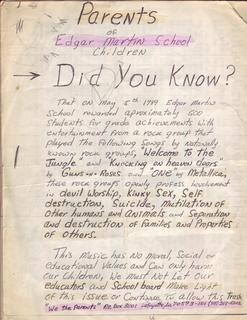 Parents
of
Edgar Martin School
Children
Did You Know?
That on May 5th 1989 Edgar Martin
School rewarded aproximately 500
Students for grade achievements with
entertainment from a rock group that
played the following Songs by Nationally
known rock groups, Welcome To The
Jungle" and "Knocking on heaven Doors"
by Guns-n-Roses and "ONE" by Metallica;
these rock groups openly profess involvement
in devil Worship, Kinky Sex, Self
destruction, Suicide, Mutilation of
Other humans and Animals and Separation
and destruction of Families and Properties
of others.
This Music has No Moral, Social or
educational Values and Can only harm
our Children, We Must Not Let Our
educators and School board Make Light
of this Issue or Continue to allow this Trash
"We the Parents" P.O. Box